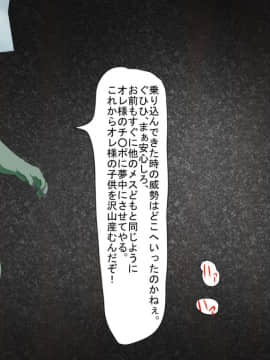 乗り込んできた時の威勢はどこへいったのかねぇ。
ぐひひ、まぁ安心しろ、
お前もすぐに他のメスどもと同じように
オレ様のチ〇ポに夢中にさせてやる。
これからオレ様の子供を沢山産むんだぞ！